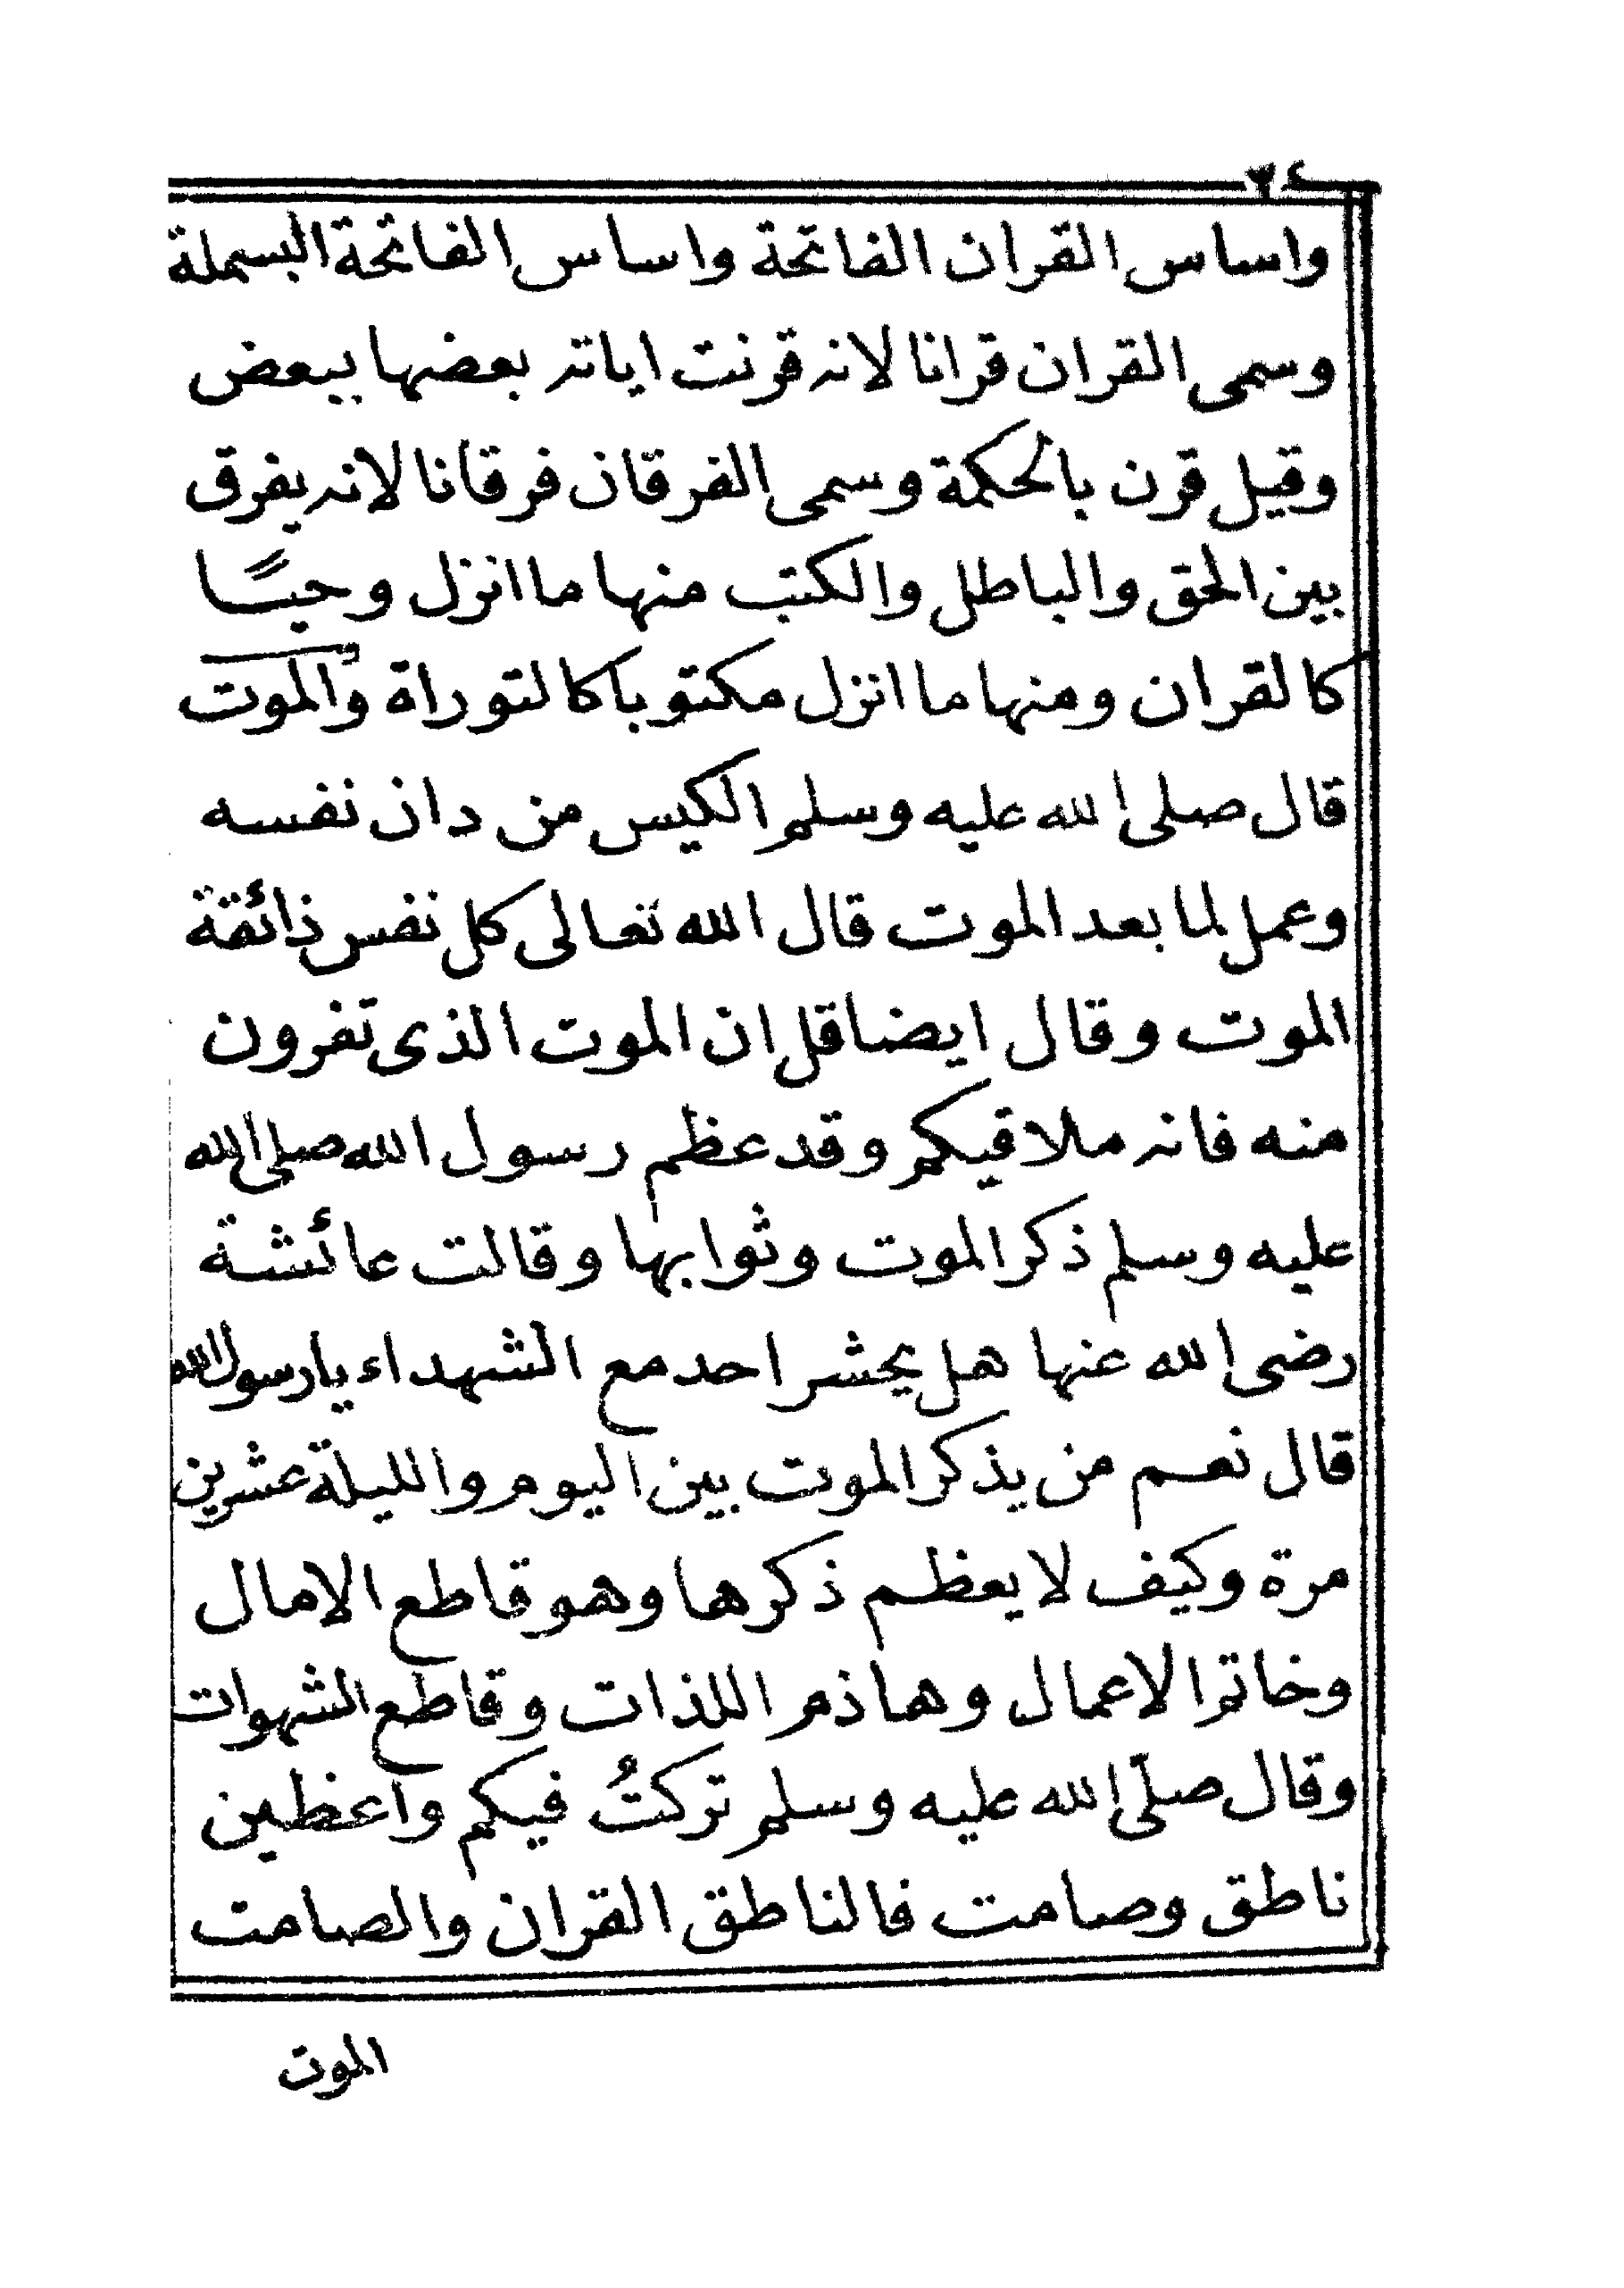 ٢٤
واساس القران الفاتحة واساس الفاتحة البسملة
وسمى القران قرانا لانه قرنت اياته بعضها ببعض
وقيل قرن بالحكمة وسمى الفرقان فرقانا لانه يفرق
بين الحق والباطل والكتب منها ما انزل وحيًا
كالقران ومنها ما انزل مكتوبا كالتوراة والموت
قال صلى الله عليه وسلم الكيس من دان نفسه
وعمل لما بعد الموت قال الله تعالى كل نفس ذائقة
الموت وقال ايضا قل ان الموت الذى تفرون
منه فانه ملاقيكم وقد عظم رسول الله صلى الله
عليه وسلم ذكر الموت وثوابها وقالت عائشة
رضى الله عنها هل يحشر احد مع الشهداء يارسول الله
قال نعم من يذكر الموت بين اليوم والليلة عشرين
مرة وكيف لا يعظم ذكرها وهو قاطع الامال
وخاتم الاعمال وهاذم اللذات وقاطع الشهوات
وقال صلّى الله عليه وسلم تركتُ فيكم واعظين
ناطق وصامت فالناطق القران والصامت
الموت